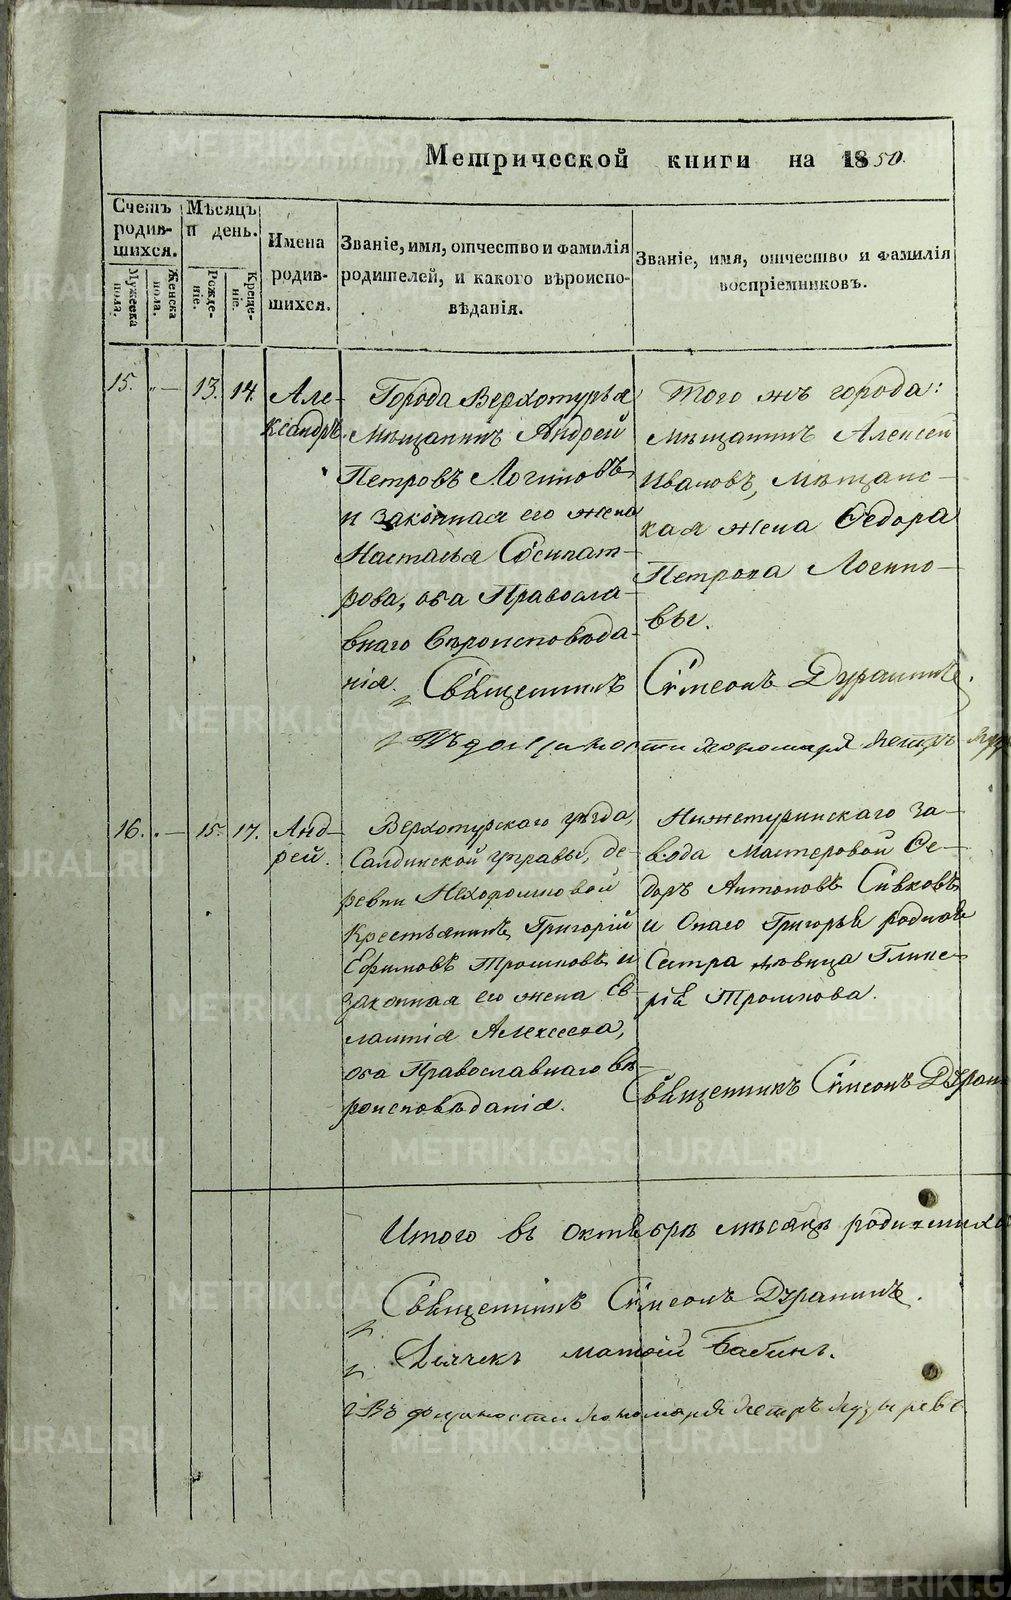 Метрической книги на 1850.
Счетъ родив-шихся.
Мужеска пола.
Женска пола.
Мѣсяцъ и день.
Рожде-ніе.
Креще-ніе.
Имена родив-шихся.
Званіе, имя, отчество и фамилія
родителей, и какого вѣроиспо-
вѣданія.
Званіе, имя, отчество и фамилія
воспріемниковъ.
15. „ — 13. 14.
Але-
ксандръ.
Города Верхотурья
Мѣщанинъ Андрей
Петровъ Логиновъ
и законная его жена
Настасья Осипат-
рова, оба Правосла-
внаго Вѣроисповѣда-
нія.
Того жъ города:
Мѣщанинъ Алексей
Ивановъ, Мѣщанс-
кая жена Ѳедора
Петрова
вы.
Священникъ Сѵмеонъ
Въ должности пономаря Петръ
16. „ — 15. 17.
Анд-
рей.
Верхотурскаго уѣзда,
Салдинской управы, де-
ревни Нехорошковой
Крестьянинъ Григорій
Ефимовъ Трошковъ и
законная его жена Ев-
лампія Алексеева,
оба Православнаго вѣ-
роисповѣданія.
Нижнетуринскаго за-
вода Мастеровой Ѳе-
доръ Антоновъ Сивковъ
и Онаго Григорья родная
Сестра дѣвица Глике-
рія Трошкова.
Священникъ Сѵмеонъ
Итого въ октябрѣ мѣсяцѣ родившихся
Священникъ Сѵмеонъ
Дьячекъ Матѳій Бабинъ.
Въ должности пономаря Петръ Пузыревъ
METRIKI.GASO-URAL.RU